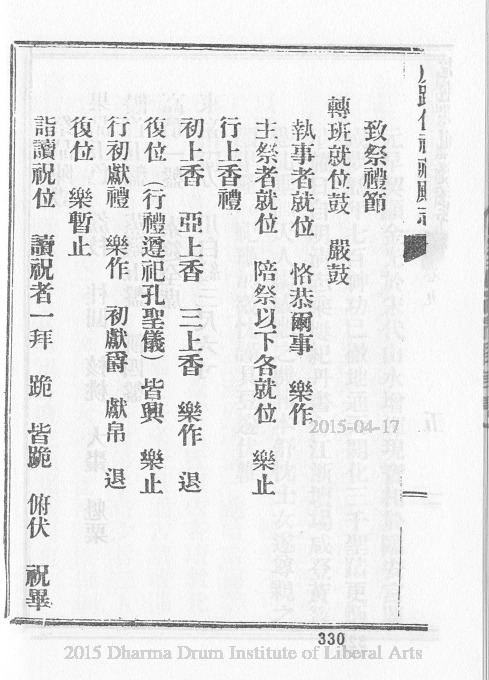 致祭禮節
轉班就位鼓　嚴鼓
執事者就位　恪恭爾事　樂作
主祭者就位　陪祭以下各就位　樂止
行上香禮
初上香　亞上香　三上香　樂作　退
復位　（行禮遵祀孔聖儀）皆興　樂止
行初獻禮　樂作　初獻爵　獻帛　退
復位　樂暫止
詣讀祝位　讀祝者一拜　跪　皆跪　俯伏　祝畢
2015-04-17
330
2015 Dharma Drum Institute of Liberal Arts